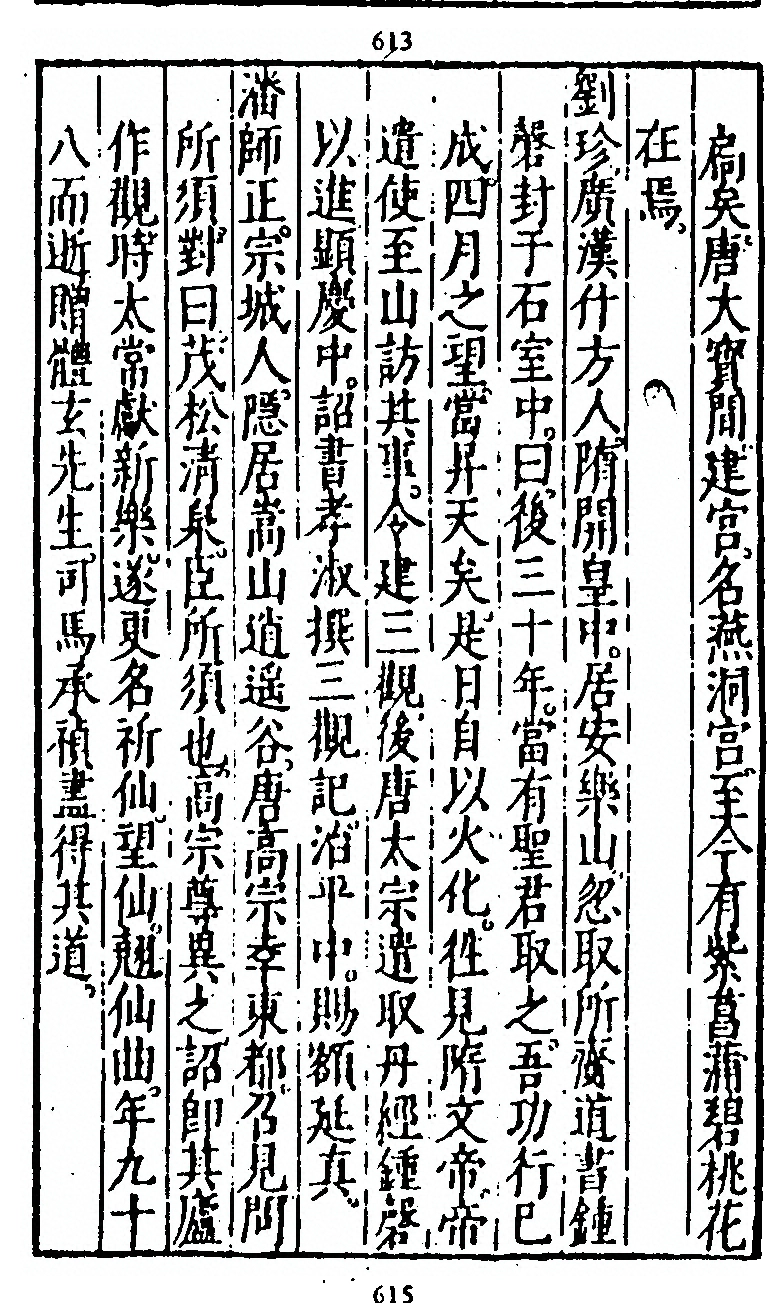 613
扃矣唐大寶間建宮名燕洞宮至今有紫菖蒲碧桃花
在焉
劉珍廣漢什方人隋開皇中居安樂山忽取所齎道書鍾
磬封于石室中曰後三十年當有聖君取之吾功行已
成四月之望當昇天矣是日自以火化往見隋文帝帝
遣使至山訪其事令建三觀後唐太宗遣取丹經鍾磬
以進顯慶中詔書孝淑撰三觀記治平中賜額延真
潘師正宗城人隱居嵩山逍遥谷唐高宗幸東都召見問
所須對曰茂松清泉臣所須也高宗尊異之詔即其廬
作觀時太常獻新樂遂更名祈仙望仙翹仙曲年九十
八而逝贈體玄先生司馬承禎盡得其道
615